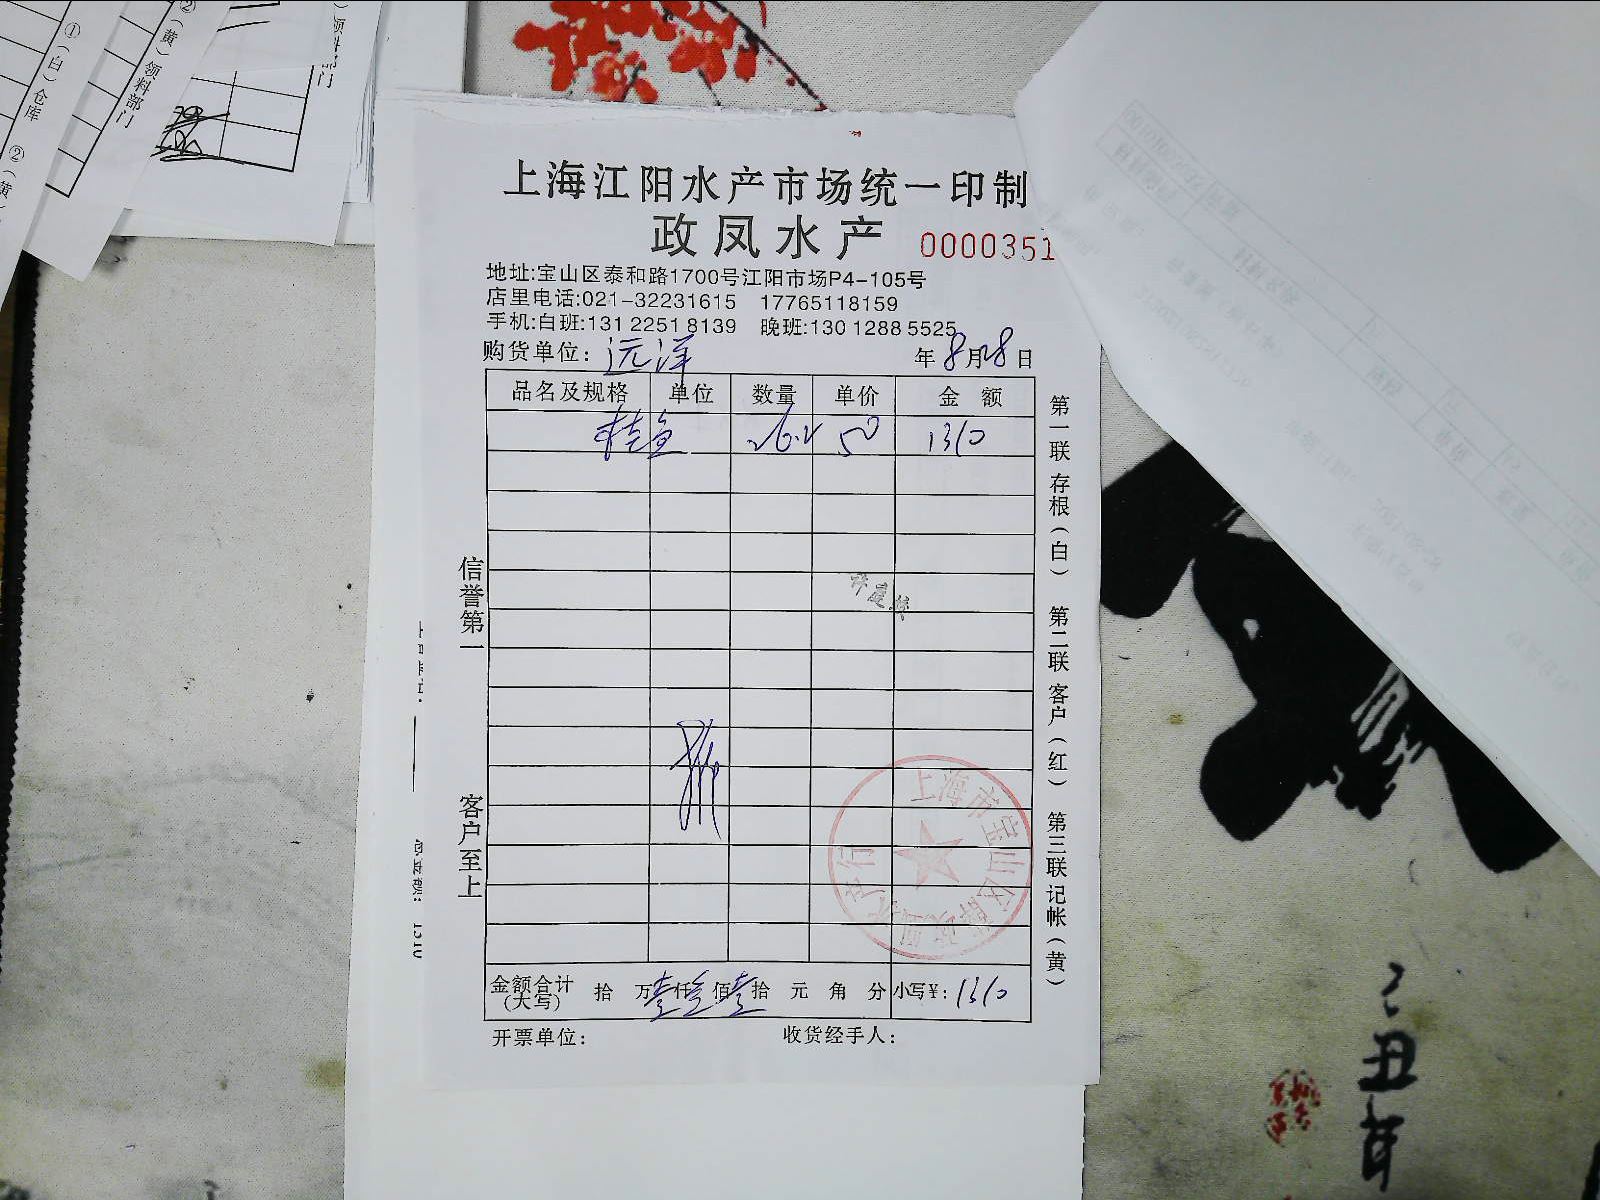 上海江阳水产市场统一印制
政凤水产
0000351
地址:宝山区泰和路1700号江阳市场P4-105号
店里电话:021-32231615 17765118159
手机:白班:131 2251 8139 晚班:130 1288 5525
购货单位: 远洋 年 8 月 28 日
品名及规格 单位 数量 单价 金 额
桂鱼 26.2 50 1310
信誉第一
客户至上
第一联 存根(白) 第二联 客户(红) 第三联 记帐(黄)
金额合计 (大写) 拾 万 壹 仟 叁 佰 壹 拾 元 角 分 小写¥: 1310
开票单位: 收货经手人:
①(白)仓库 ②(黄)
②(黄)领料部门
领料部门
上海市宝山区
己丑年